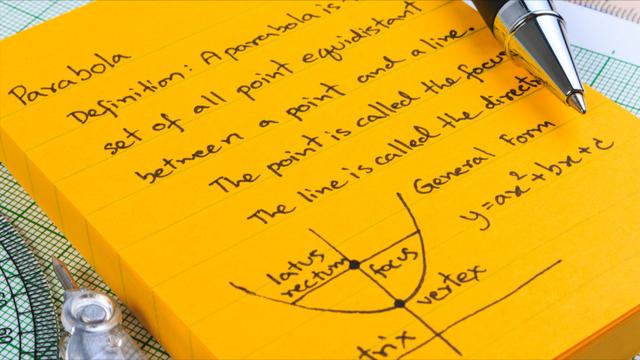 Parabola
Definition: A parabola is
set of all point equidistant
between a point and a line.
The point is called the focus
The line is called the
General Form
y=ax²+bx+c
latus
rectum
focus
vertex